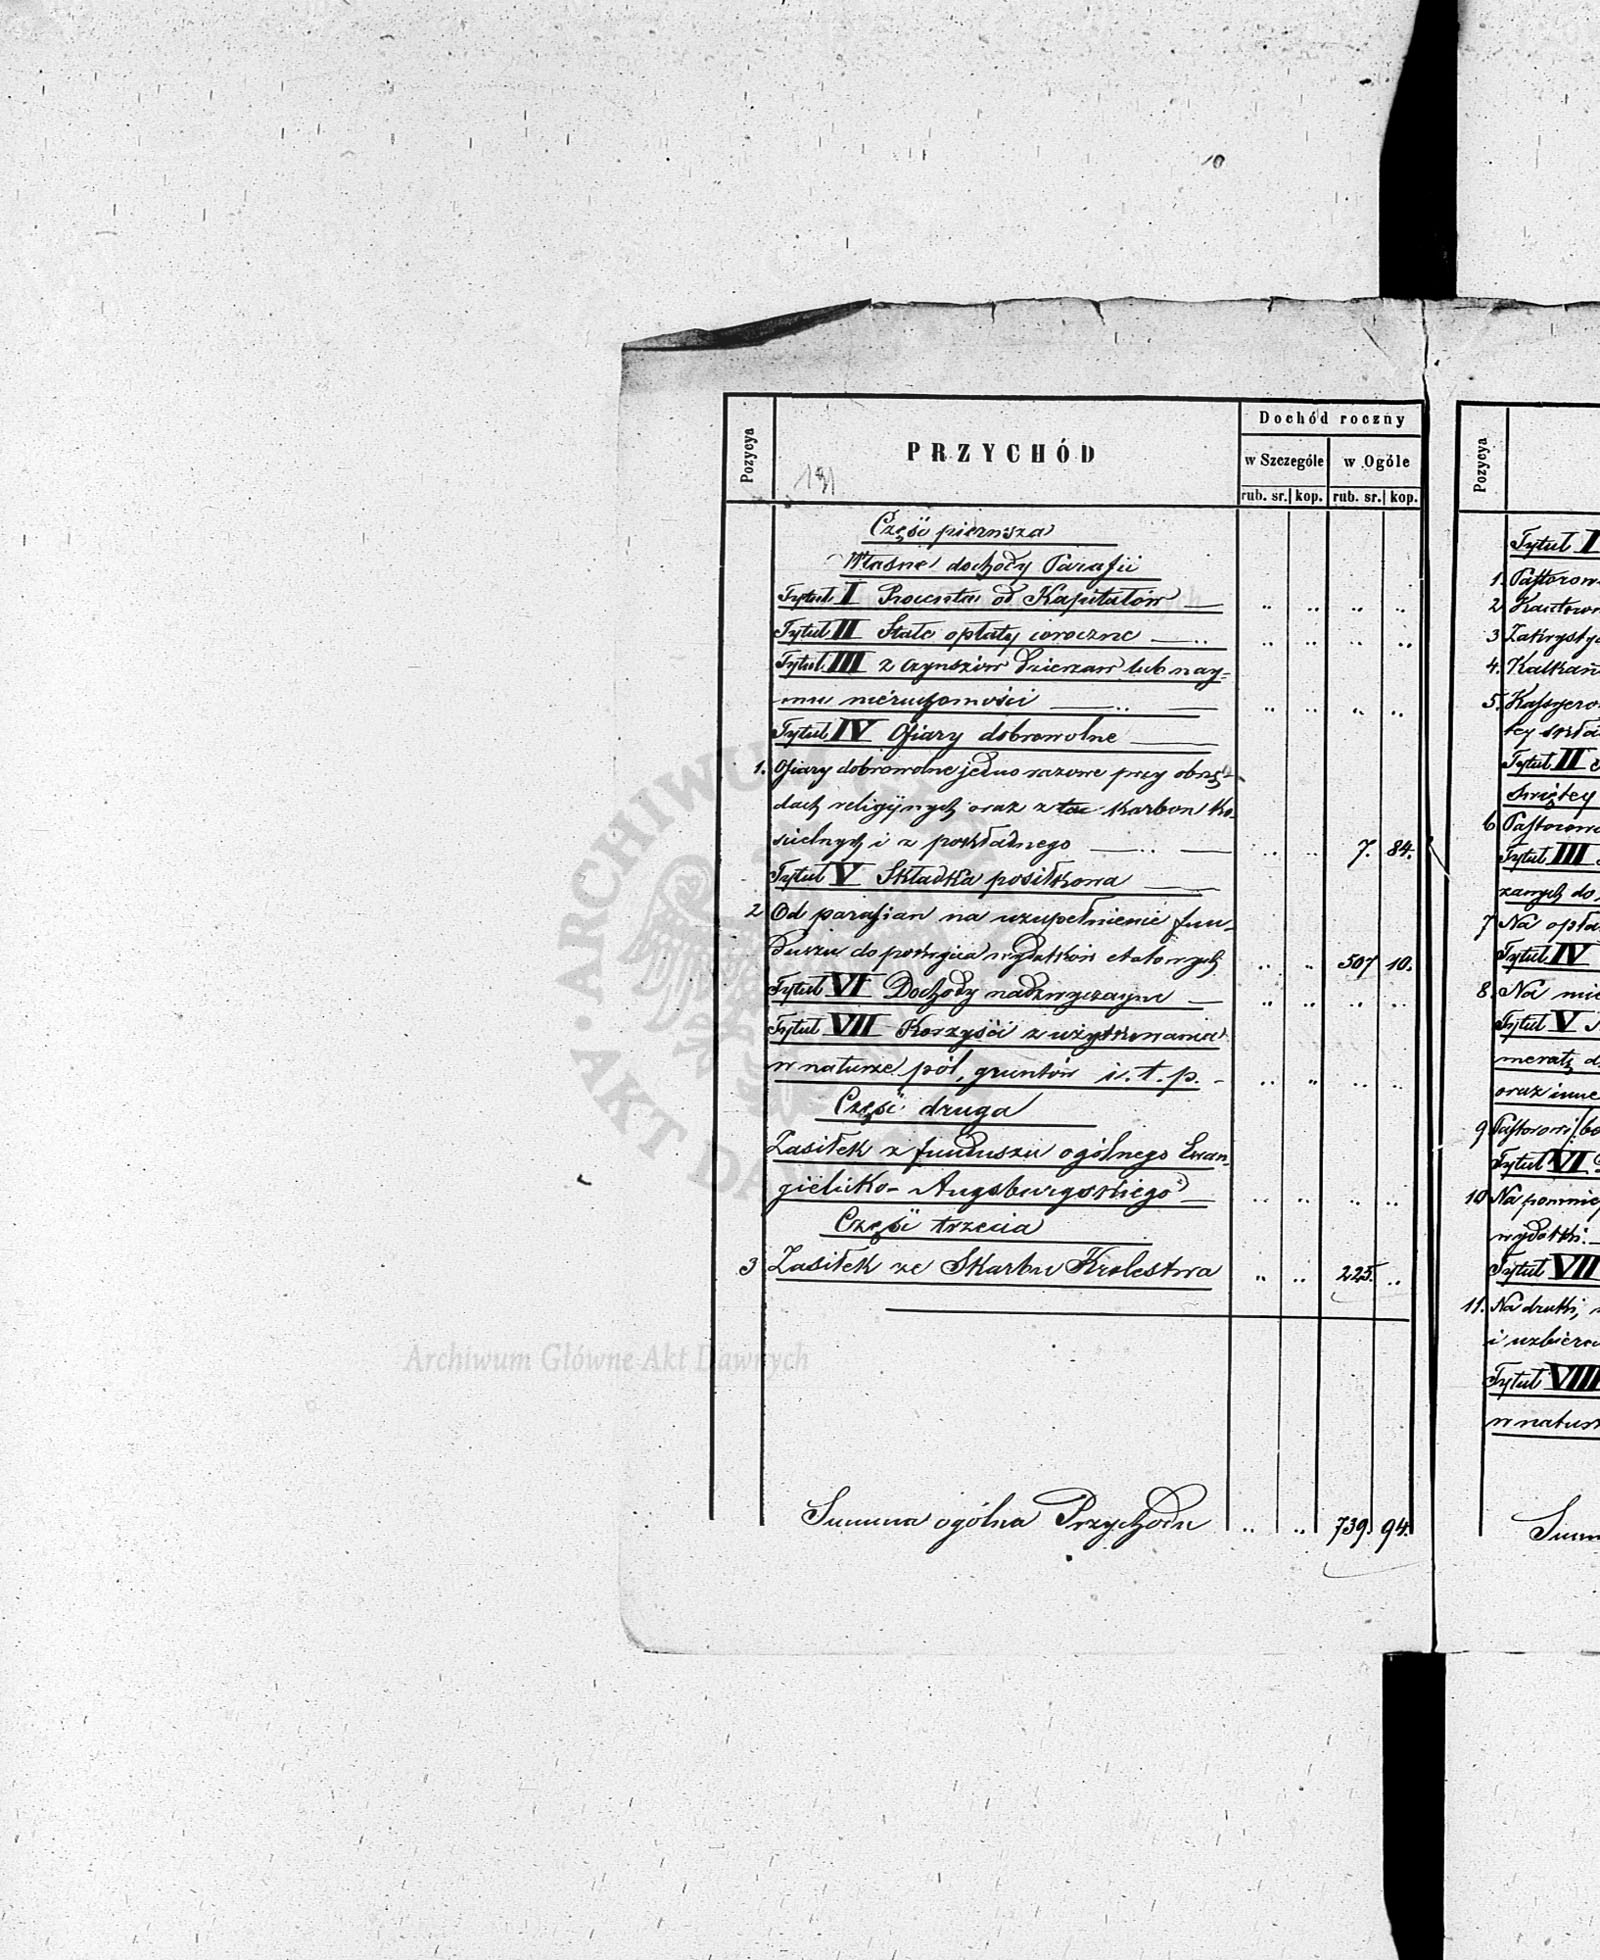 10
Pozycya
PRZYCHÓD
Dochód roczny
w Szczególe
w Ogóle
rub. sr. kop. rub. sr. kop.
191
Część pierwsza
Własne dochody Parafii
Tytuł I Procenta od Kapitałów — .. .. .. ..
Tytuł II Stałe opłaty coroczne — .. .. .. ..
Tytuł III z czynszów dzierzaw lub nay-
mu nieruchomości — .. .. .. ..
Tytuł IV Ofiary dobrowolne —
1. Ofiary dobrowolne jedno razowe przy obrzę-
dach religijnych oraz z karbon Ko-
scielnych i z pokładnego — .. .. 7. 84.
Tytuł V Składka posiłkowa —
2 Od parafian na uzupełnienie fun-
duszu do pokrycia wydatków etatowych .. .. 507 10.
Tytuł VI Dochody nadzwyczayne — .. .. .. ..
Tytuł VII Korzyści z użytkowania
w naturze pól, gruntów i. t. p. - .. .. .. ..
Część druga
Zasiłek z funduszu ogólnego Ewan-
gielicko-Augsburgskiego — .. .. .. ..
Część trzecia
3 Zasiłek ze Skarbu Krolestwa .. .. 225. ..
Summa ogólna Przychodu .. .. 739. 94.
Pozycya
Tytuł I
1. Pastorow
2 Kantorow
3 Zakrysty
4. Kalkan
5. Kassyero
tey skła
Tytuł II
Swiętey
6 Pastorow
Tytuł III
zanych do
7 Na opła
Tytuł IV
8. Na mie
Tytuł V
meratę d
oraz inne
9 Pastorowi
Tytuł VI
10 Na pomniey
wydatki.
Tytuł VII
11. Na druki,
i uzbiera
Tytuł VIII
w natur
Summ
ARCHIWUM GŁÓWNE AKT DAWNYCH
Archiwum Główne Akt Dawnych